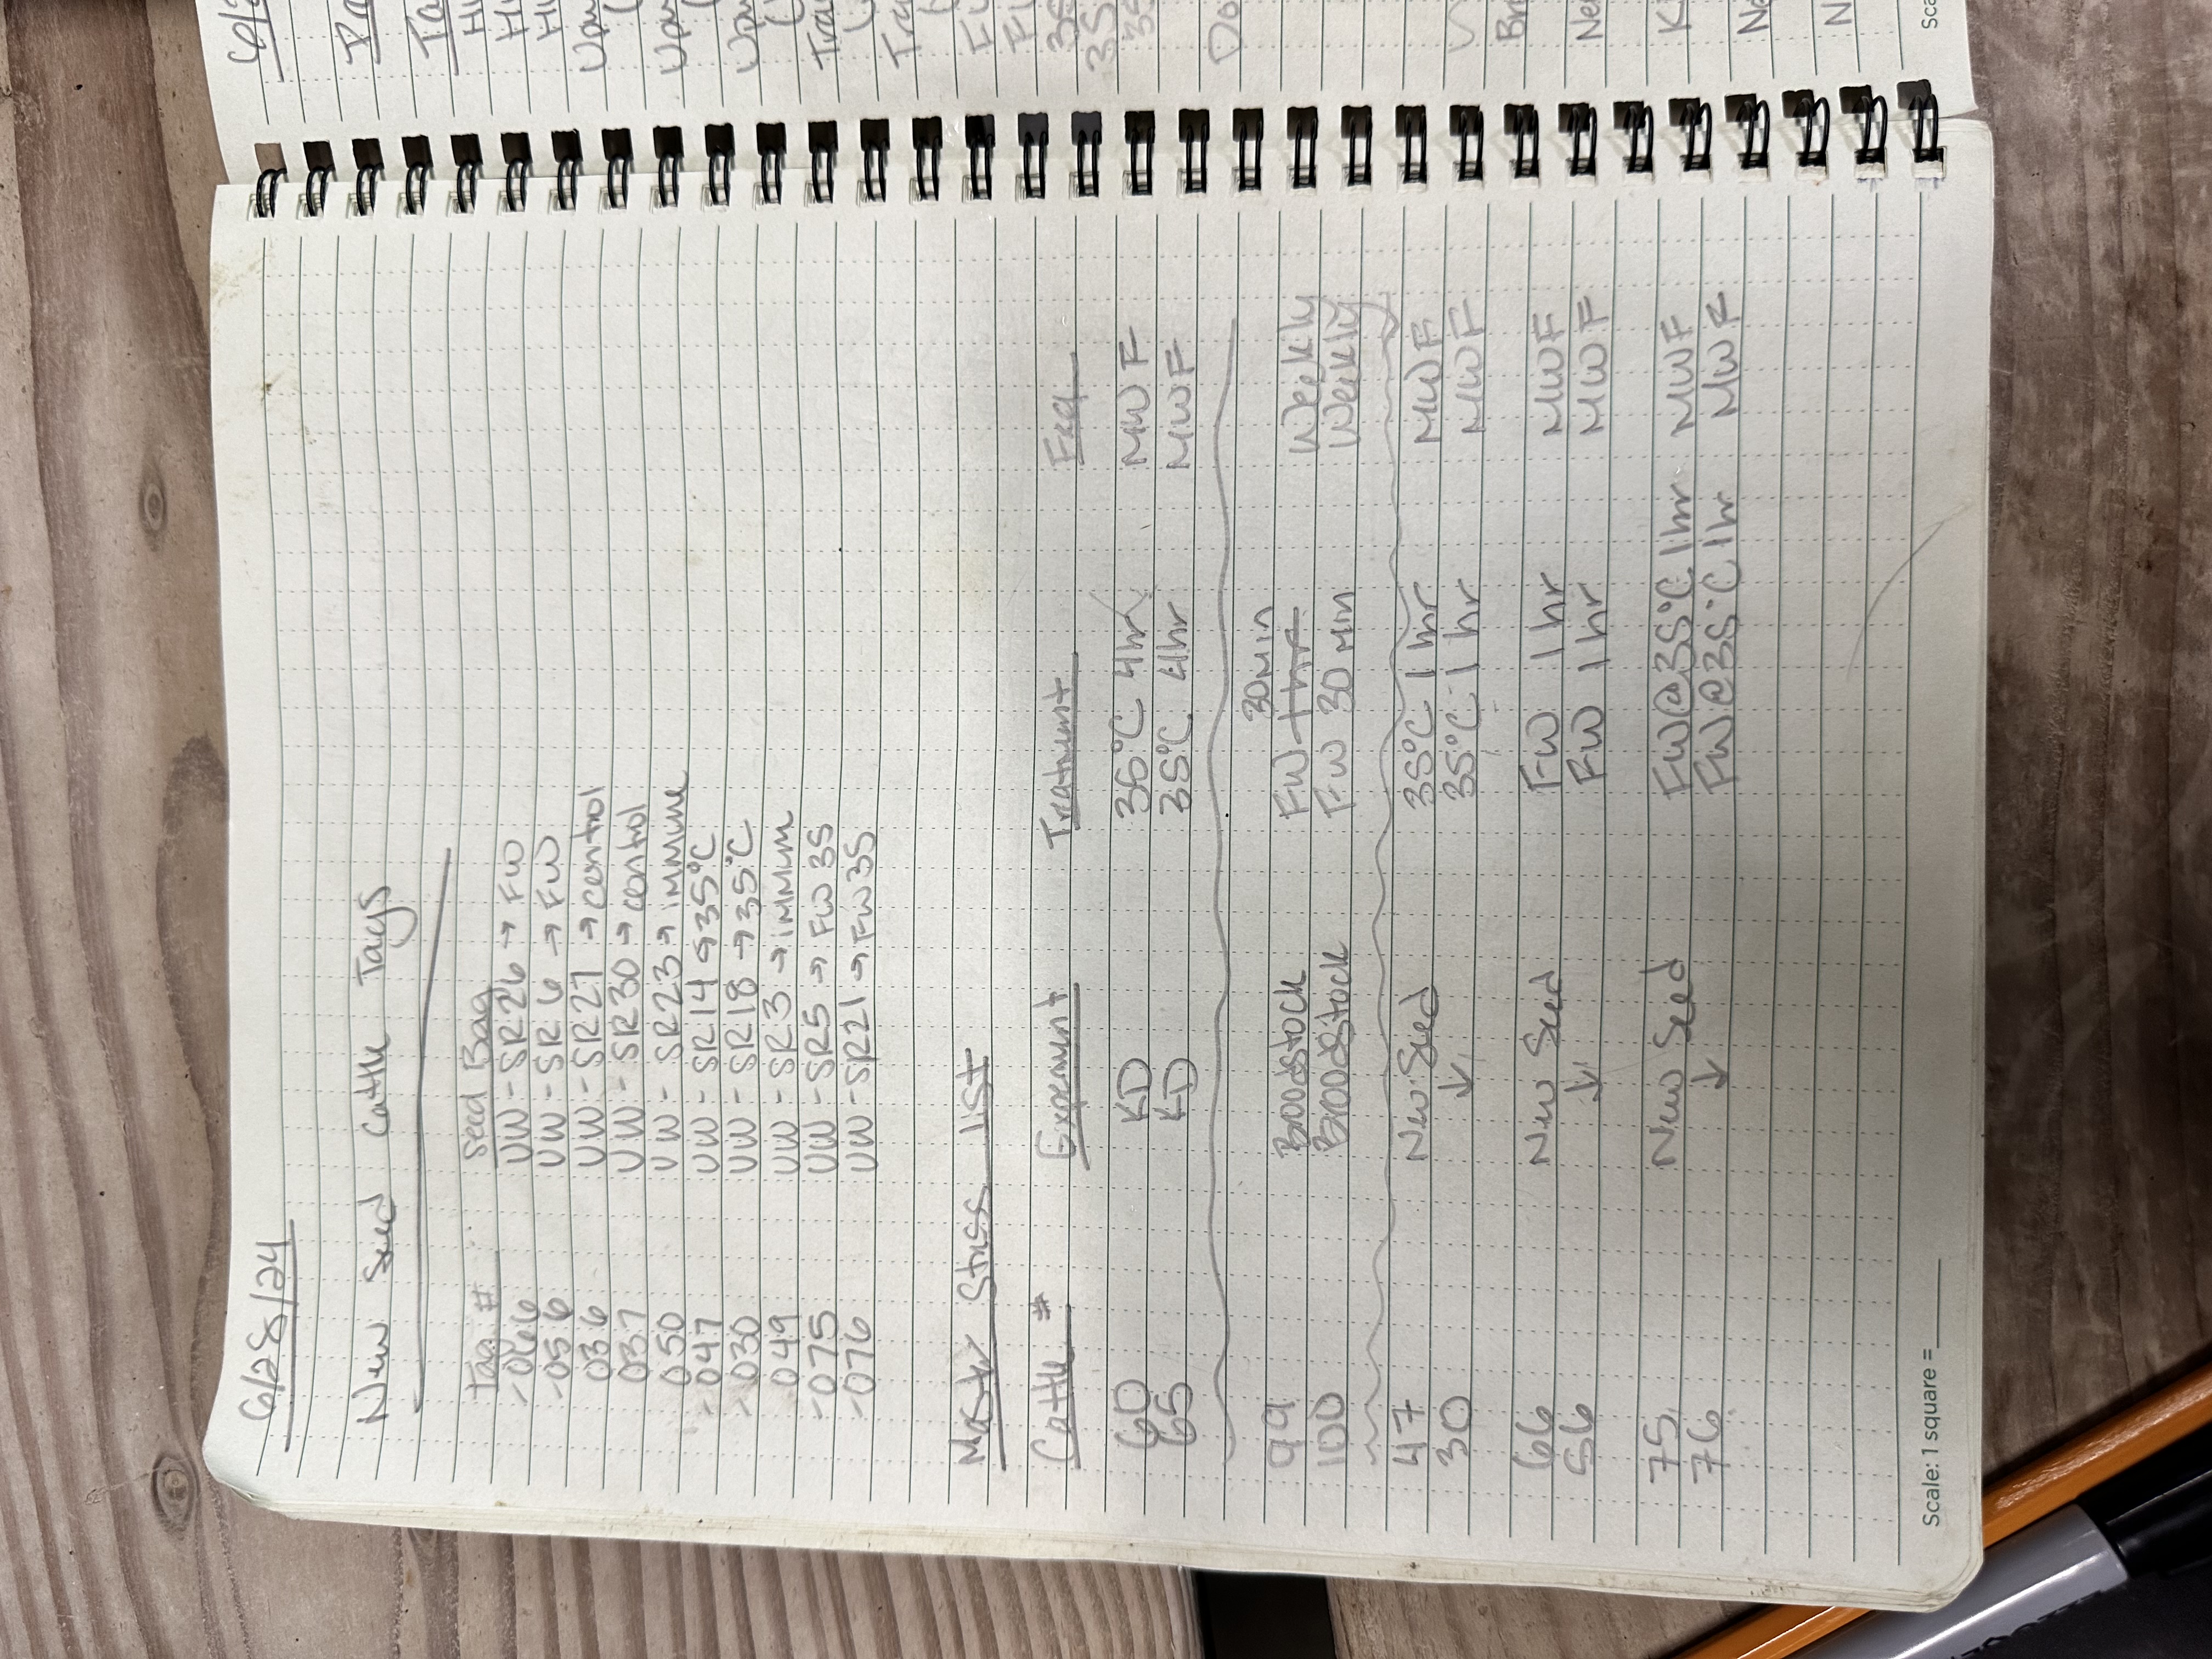 6/28/24
New Seed Cattle Tags
Tag # Seed Bag
-066 UW-SR26 → FW
-056 UW-SR6 → FW
036 UW-SR27 → control
037 UW-SR30 → control
050 UW-SR23 → immune
-047 UW-SR14 → 35°C
-030 UW-SR18 → 35°C
049 UW-SR3 → immune
-075 UW-SR5 → FW 35
-076 UW-SR21 → FW 35
Master Stress List
Cattle # Experiment Treatment Freq.
60 KD 35°C 4hr MWF
65 KD 35°C 4hr MWF
30min
99 Broodstock FW 1hr Weekly
100 Broodstock FW 30 min Weekly
47 New Seed 35°C 1 hr MWF
30 ↓ 35°C 1 hr MWF
66 New Seed FW 1hr MWF
56 ↓ FW 1hr MWF
75 New Seed FW@35°C 1hr MWF
76 ↓ FW@35°C 1hr MWF
Scale: 1 square =